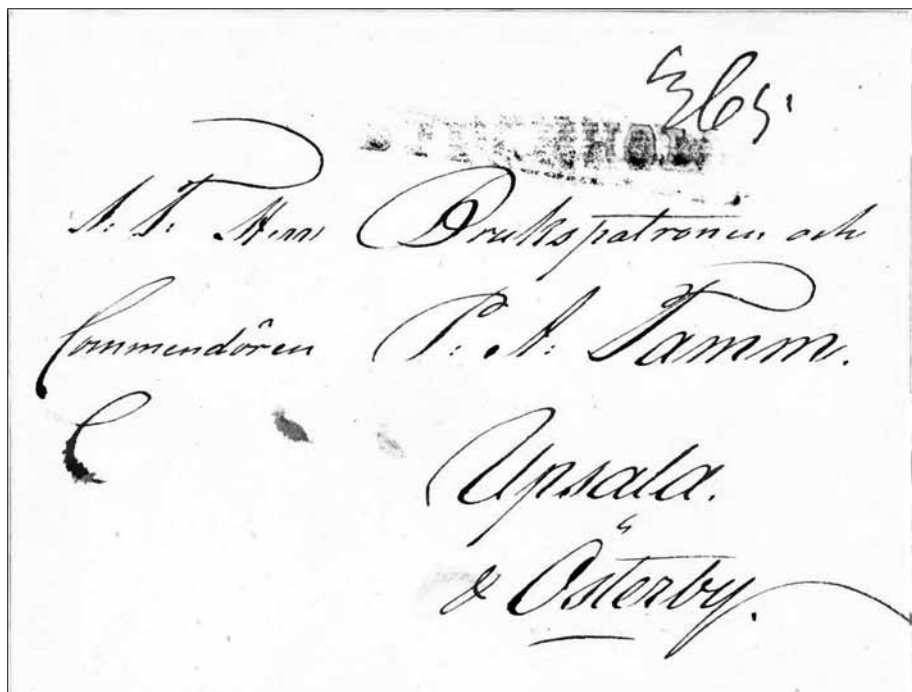 S: T: Herr Brukspatronen och
Commendören P: A: Tamm.
Upsala.
& Österby.